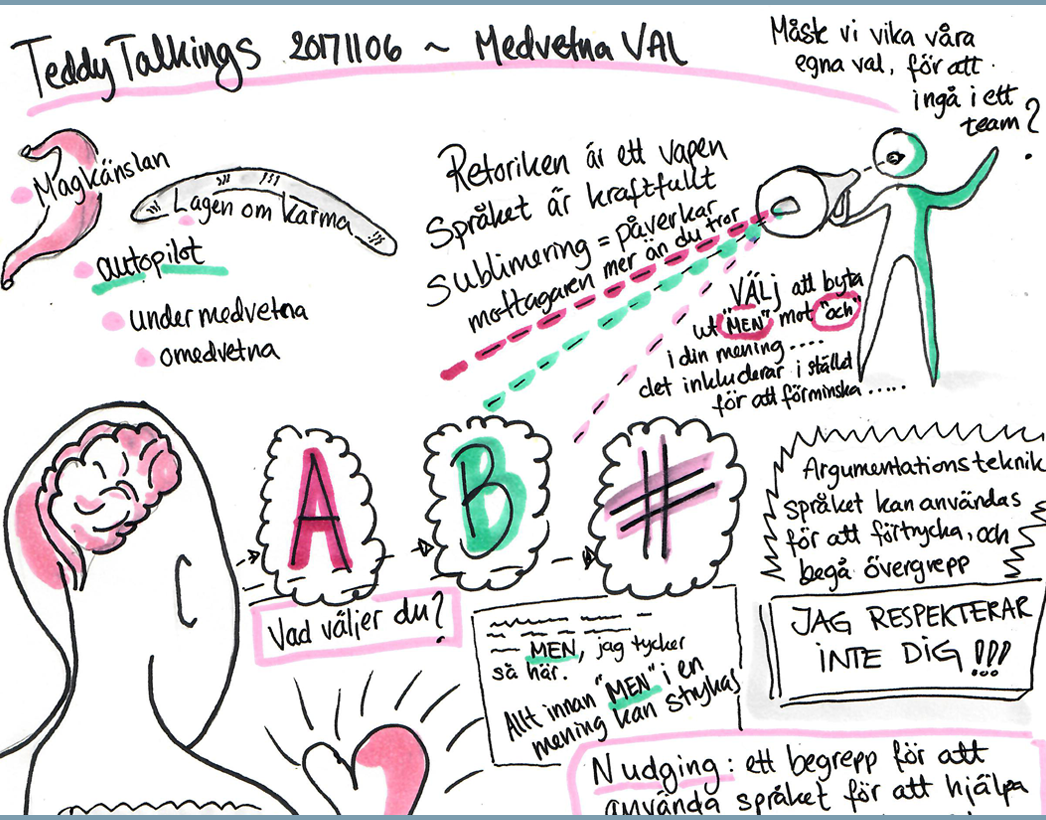 Teddy Talkings 20171106 ~ Medvetna VAL
Måste vi vika våra
egna val, för att
ingå i ett
team?
Magkänslan
Lagen om karma
autopilot
undermedvetna
omedvetna
Retoriken är ett vapen
Språket är kraftfullt
Sublimering = påverkar
mottagaren mer än du tror
VÄLJ att byta
ut "MEN" mot "och"
i din mening ....
det inkluderar i stället
för att förminska .....
A
B
#
Vad väljer du?
MEN, jag tycker
så här.
Allt innan "MEN" i en
mening kan strykas
Argumentationsteknik
språket kan användas
för att förtrycka, och
begå övergrepp
JAG RESPEKTERAR
INTE DIG !!!
Nudging: ett begrepp för att
använda språket för att hjälpa